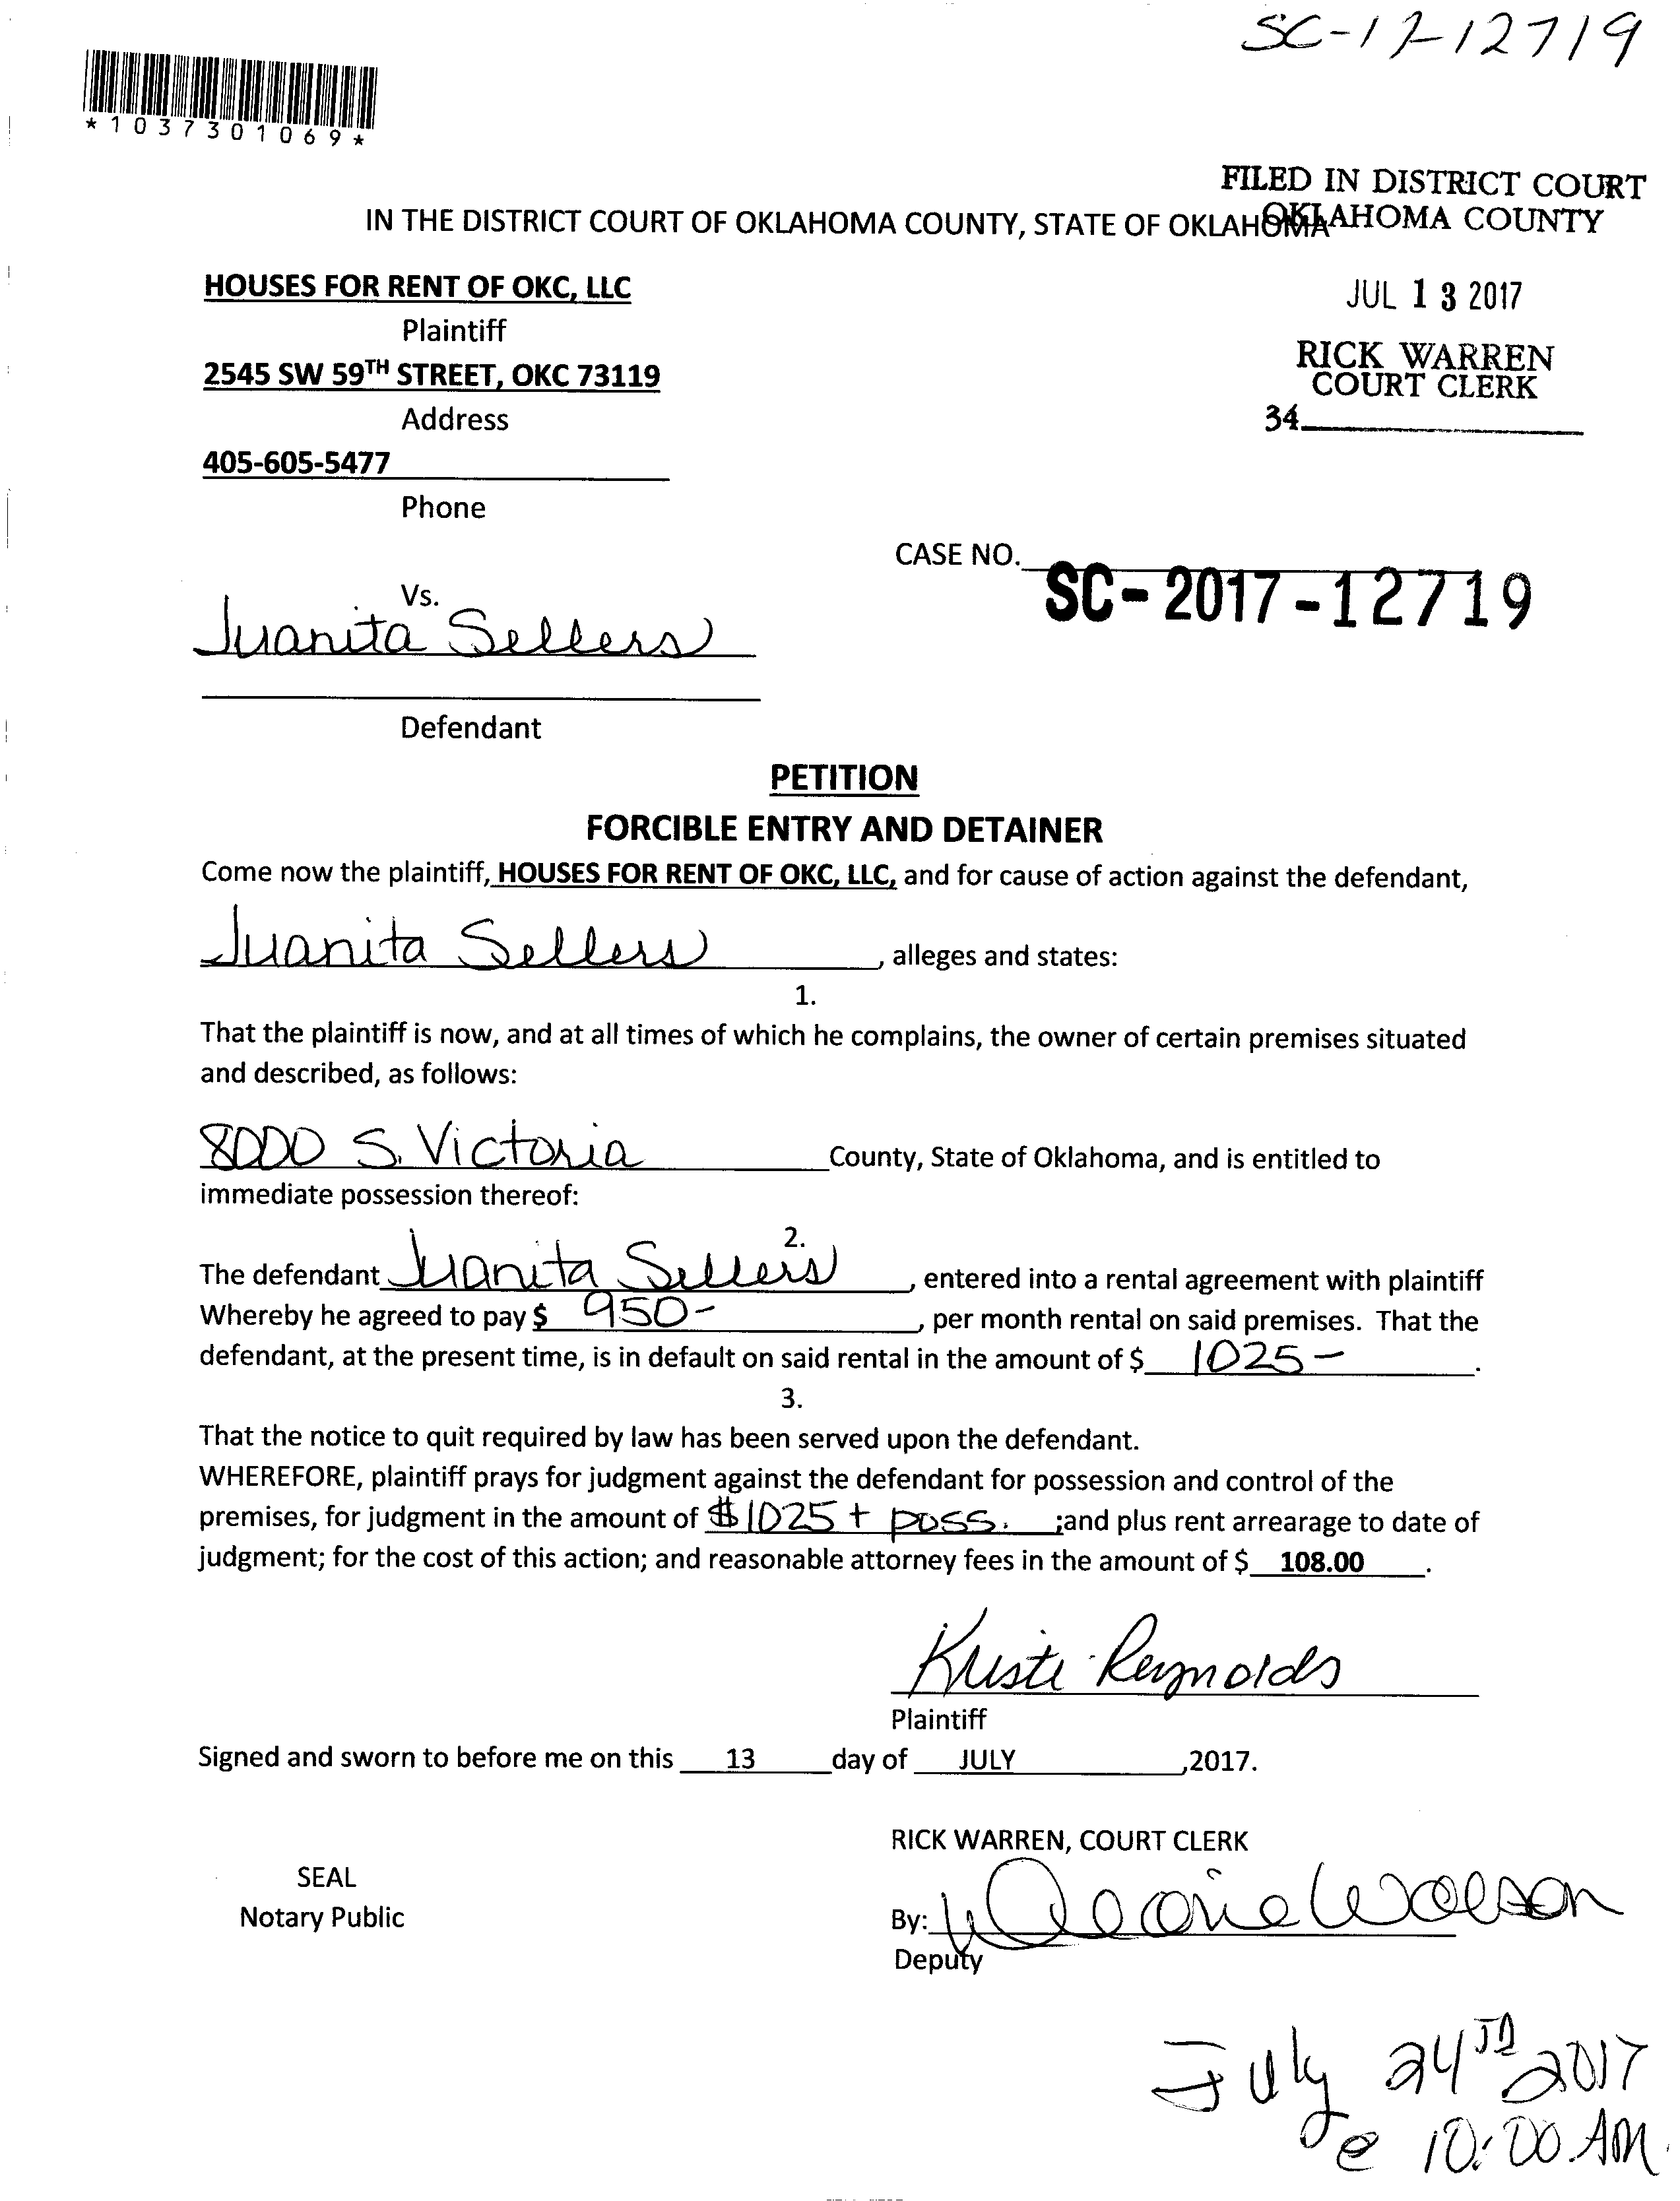 SC-17-12719
*1037301069*
FILED IN DISTRICT COURT
OKLAHOMA COUNTY
IN THE DISTRICT COURT OF OKLAHOMA COUNTY, STATE OF OKLAHOMA
HOUSES FOR RENT OF OKC, LLC
JUL 13 2017
Plaintiff
RICK WARREN
COURT CLERK
2545 SW 59TH STREET, OKC 73119
Address
34
405-605-5477
Phone
CASE NO. SC-2017-12719
Vs.
Juanita Sellers
Defendant
PETITION
FORCIBLE ENTRY AND DETAINER
Come now the plaintiff, HOUSES FOR RENT OF OKC, LLC, and for cause of action against the defendant,
Juanita Sellers, alleges and states:
1.
That the plaintiff is now, and at all times of which he complains, the owner of certain premises situated
and described, as follows:
8000 S. Victoria County, State of Oklahoma, and is entitled to
immediate possession thereof:
2.
The defendant Juanita Sellers, entered into a rental agreement with plaintiff
Whereby he agreed to pay $ 950-, per month rental on said premises. That the
defendant, at the present time, is in default on said rental in the amount of $ 1025-.
3.
That the notice to quit required by law has been served upon the defendant.
WHEREFORE, plaintiff prays for judgment against the defendant for possession and control of the
premises, for judgment in the amount of $1025 + poss. ;and plus rent arrearage to date of
judgment; for the cost of this action; and reasonable attorney fees in the amount of $ 108.00.
Kristi Reynolds
Plaintiff
Signed and sworn to before me on this 13 day of JULY ,2017.
RICK WARREN, COURT CLERK
SEAL
Notary Public
By:
Deputy
July 24TH 2017
@ 10:00 AM